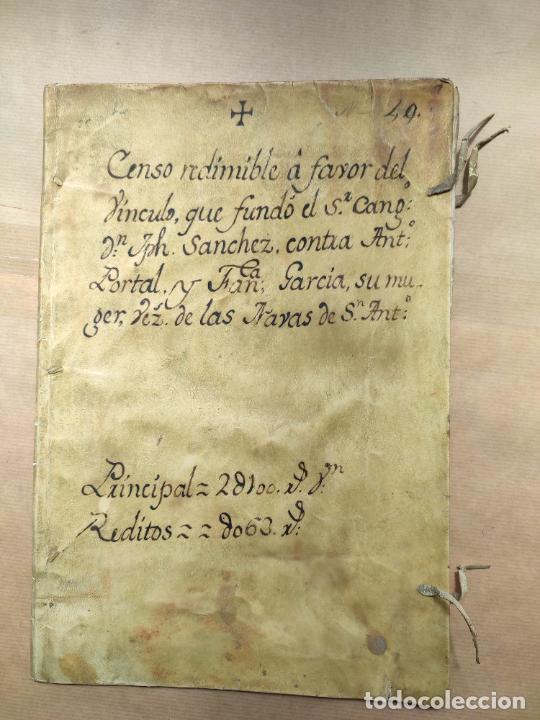 ✝
N 49.
Censo redimible â favor del
Vinculo, que fundó el S.r Cang.o
D.n Jph. Sanchez, contra Ant.o
Portal, y Fran.ca Garcia, su mu-
ger, vez.s de las Navas de S.n Ant.o
Principal = 2d100. r.s v.n
Reditos = = do63. r.s
todocoleccion
todocoleccion.net